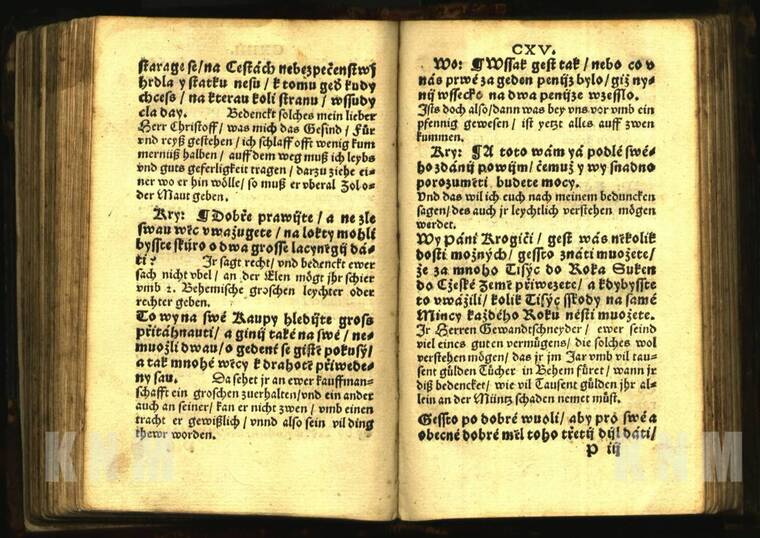 starage se/ na Cestách nebezpečenstwij
hrdla y statku nesu/ k tomu geď kudy
chceš/ na kterau koli stranu/ wssudy
cla day. Bedenckt solches mein lieber
Herr Christoff/ was mich das Gesind/ Für
vnd reyß gestehen/ ich schlaff offt wenig kum̃
mernüß halben/ auff dem weg muß ich leybs
vnd guts geferligkeit tragen/ darzu ziehe ei-
ner wo er hin wölle/ so muß er vberal Zol o-
der Maut geben.
Kry: ¶ Dobře prawijte/ a ne zle
swau wěc vwažugete/ na lokty mohli
bysste skůro o dwa grosse lacyněgij dá-
ti? Jr sagt recht/ vnd bedenckt ewer
sach nicht vbel/ an der Elen mögt jhr schier
vmb 2. Behemische groschen leychter oder
rechter geben.
To wy na swé Kaupy hledijte gross
přitáhnauti/ a ginij také na swé/ ne-
muožli dwau/ o gedené se gistě pokusý/
a tak mnohé wěcy k drahotě přiwede-
ny sau. Da sehet jr an ewer kauffman-
schafft ein groschen zuerhalten/ vnd ein ander
auch an seiner/ kan er nicht zwen/ vmb einen
tracht er gewißlich/ vnnd also sein vil ding
thewr worden.
CXV.
Wo: ¶ Wssak gest tak/ nebo co v
nás prwé za geden penijz bylo/ giž ny-
nij wssecko na dwa penijze wzesslo.
Jsts doch also/ dann was bey vns vor vmb ein
pfennig gewesen/ ist yetzt alles auff zwen
kummen.
Kry: ¶ A toto wám yá podlé swé-
ho zdánij powijm/ čemuž y wy snadno
porozuměti budete mocy.
Vnd das wil ich euch nach meinem beduncken
sagen/ des auch jr leychtlich verstehen mögen
werdet.
Wy Páni Krogiči/ gest wás několik
dosti možných/ gessto znáti muožete/
že za mnoho Tisýc do Roka Suken
do Czeské Země přiwezete/ a kdybysste
to vwážili/ kolik Tisýc sskody na samé
Mincy každého Roku nésti muožete.
Jr Herren Gewandtschneyder/ ewer seind
viel eines guten vermügens/ die solches wol
verstehen mögen/ das jr jm Jar vmb vil tau-
sent gülden Tücher in Behem füret/ wann jr
diß bedencket/ wie vil Tausent gülden jhr al-
lein an der Müntz schaden nemet müst.
Gessto po dobré wuoli/ aby pro swé a
obecné dobré měl toho třetij dijl dáti/
P iij
KNM
KNM